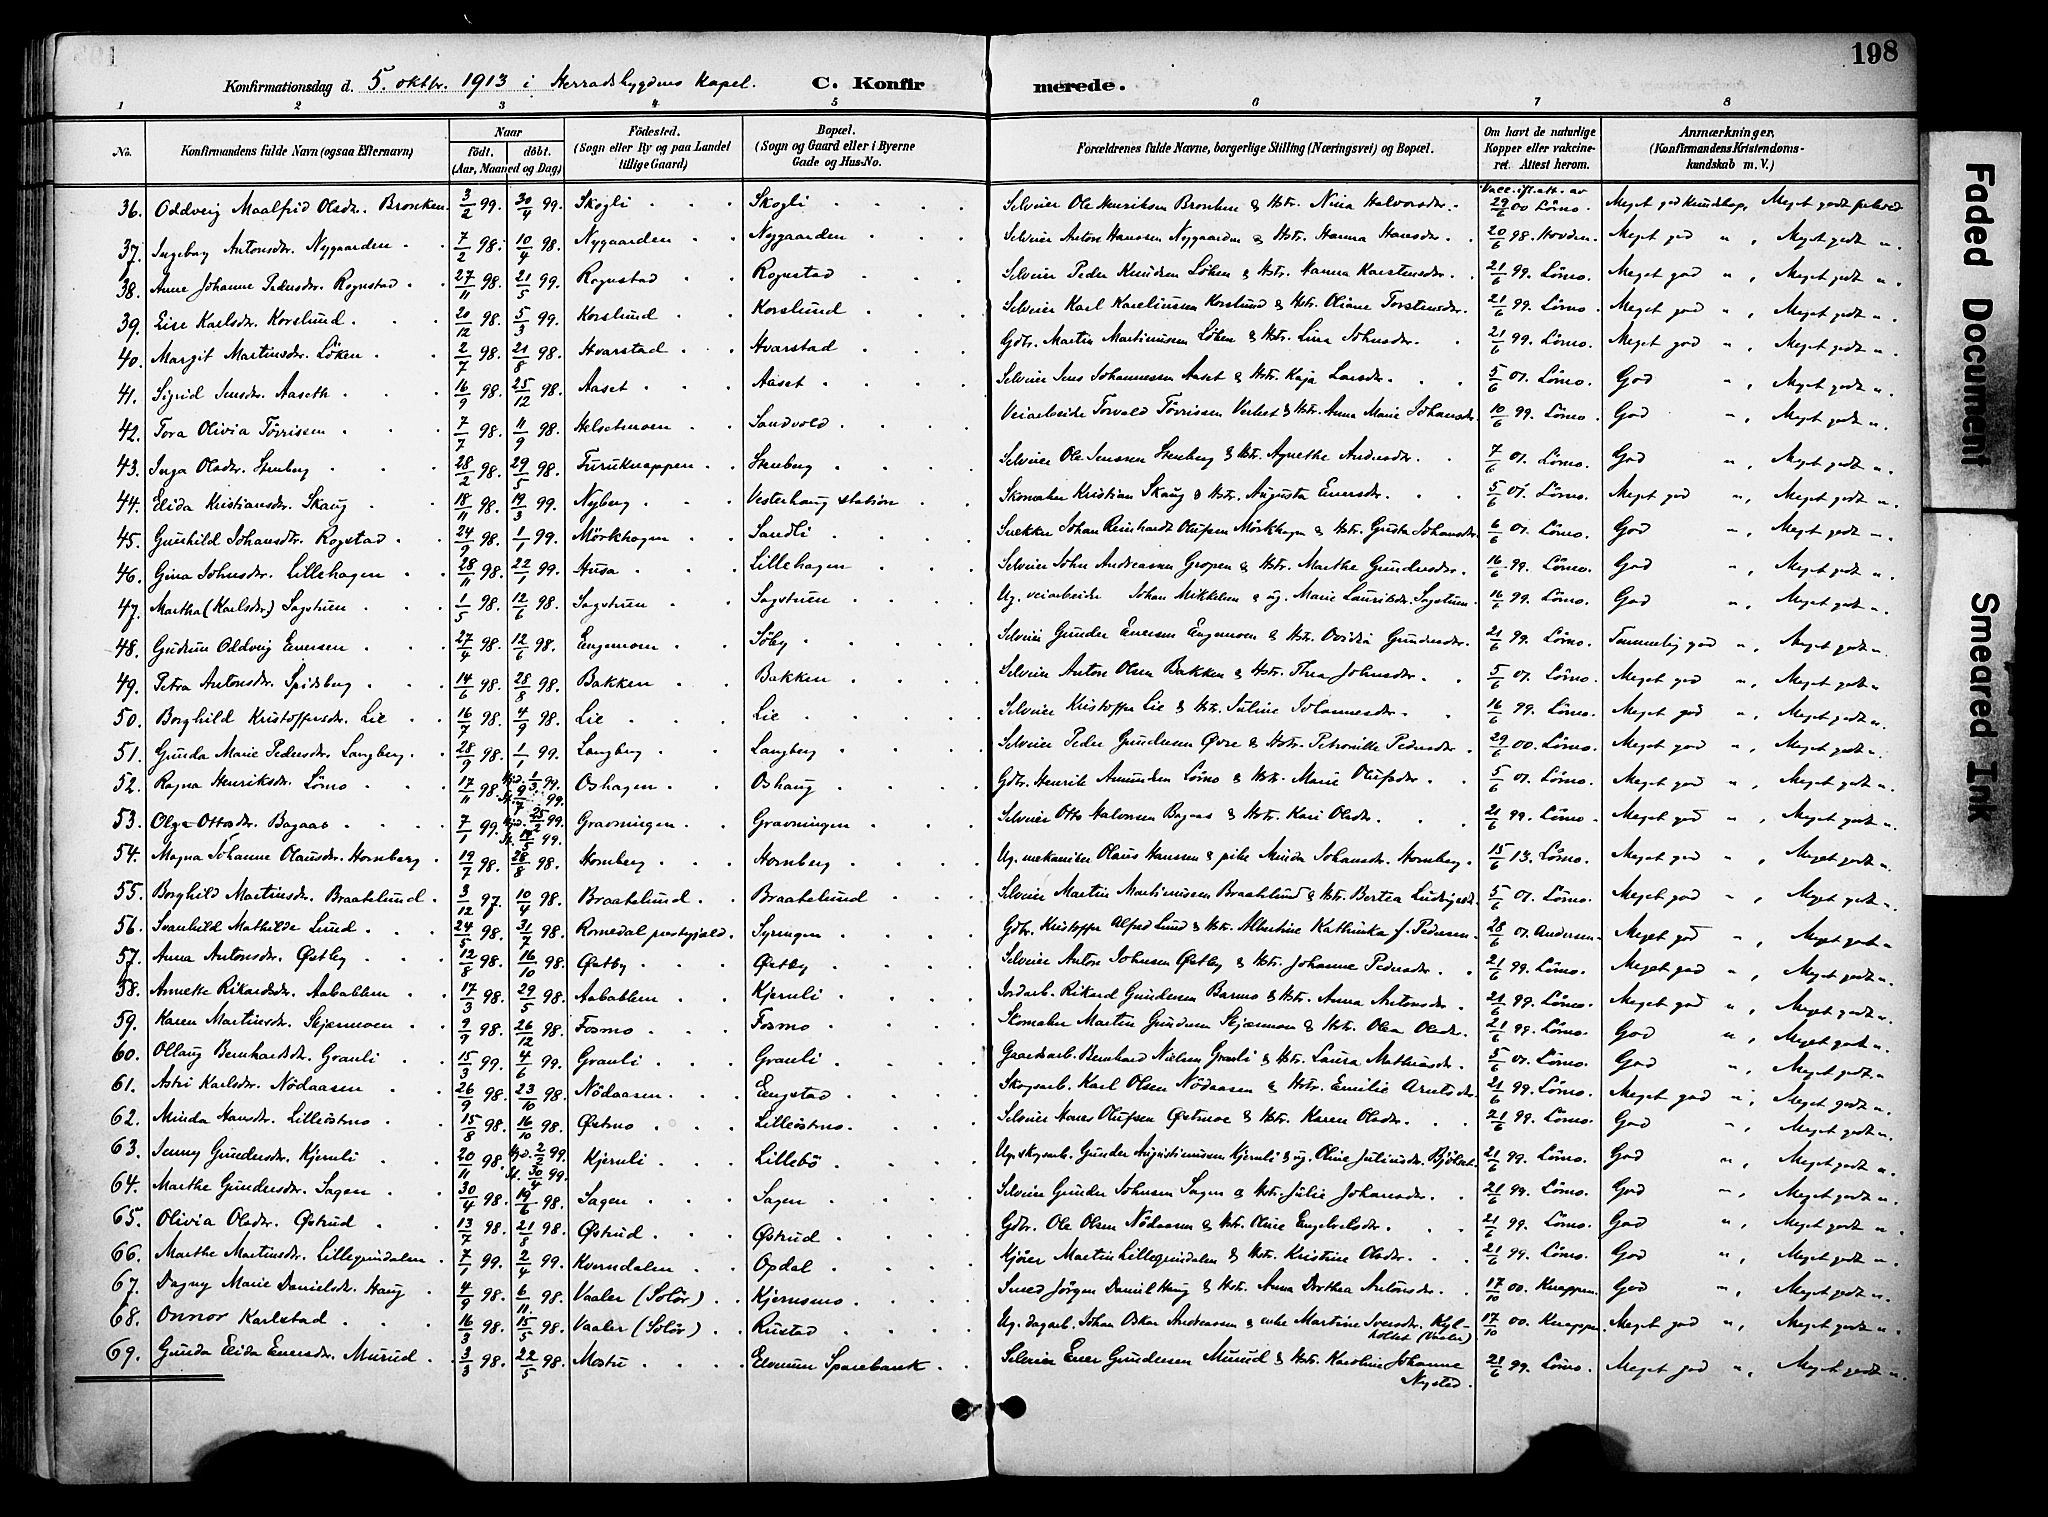 198
Konfirmationsdag d. 5. oktbr. 1913 i Herradsbygdens Kapel. C. Konfirmerede.
1 2 3 4 5 6 7 8
No. Konfirmandens fulde Navn (ogsaa Efternavn) Naar født. døbt. (Aar, Maaned og Dag) Fødested. (Sogn eller By og paa Landet tillige Gaard) Bopæl. (Sogn og Gaard eller i Byerne Gade og Hus-No.) Forældrenes fulde Navne, borgerlige Stilling (Næringsvei) og Bopæl. Om havt de naturlige Kopper eller vakcineret. Attest herom. Anmærkninger, (Konfirmandens Kristendomskundskab m. V.)
36. Oddveig Maalfrid Olsdr. Bronken 3/2 99. 30/4 99. Skogli Skogli Selveier Ole Henriksen Bronken & Hstr. Nina Halvorsdr. Vacc. ifl. att. av 29/6 00 Lömo. Meget god Kundskap, Meget godt forhold
37. Ingeborg Antonsdr. Nygaarden 7/2 98. 10/4 98. Nygaarden Nygaarden Selveier Anton Hanssen Nygaarden & Hstr. Hanna Hansdr. 20/6 98. Hovden. Meget god ", Meget godt ".
38. Anne Johanne Pedersdr. Rognstad 27/11 98. 21/5 99. Rognstad Rognstad Selveier Peder Knudsen Löken & Hstr. Hanna Karstensdr. 21/6 99. Lömo. Meget god ", Meget godt ".
39. Elise Karlsdr. Korslund 20/12 98. 5/3 99. Korslund Korslund Selveier Karl Kareliussen Korslund & Hstr. Oliane Torstensdr. 21/6 99. Lömo. Meget god ", Meget godt ".
40. Margit Martinsdr. Löken 2/7 98. 21/8 98. Hvarstad Hvarstad Gdbr. Martin Martinussen Löken & Hstr. Lina Johnsdr. 21/6 99. Lömo. Meget god ", Meget godt ".
41. Sigrid Jensdr. Aaseth 16/9 98. 25/12 98. Aaset Aaset Selveier Jens Johannessen Aaset & Hstr. Kaja Larsdr. 5/6 01. Lömo. God ", Meget godt ".
42. Tora Olivia Törrissen 7/7 98. 11/9 98. Helsetmoen Sandvold Veiarbeider Torvald Törrissen Verket & Hstr. Anna Marie Johansdr. 10/6 99. Lömo. God ", Meget godt ".
43. Inga Olsdr. Stenberg 28/2 98. 29/5 98. Furuknappen Stenberg Selveier Ole Jenssen Stenberg & Hstr. Agnethe Andersdr. 7/6 01. Lömo. God ", Meget godt ".
44. Elida Kristiansdr. Skaug 18/11 98. 19/3 99. Nyberg Vesterhaug station Skomaker Kristian Skaug & Hstr. Augusta Eversdr. 5/6 01. Lömo. Meget god ", Meget godt ".
45. Gunhild Johansdr. Rogstad 24/9 98. 1/1 99. Mörkhagen Sandli Snekker Johan Reinhardt Olufsen Mörkhagen & Hstr. Gusta Johansdr. 6/6 01. Lömo. God ", Meget godt ".
46. Gina Johnsdr. Lillehagen 28/11 98. 22/1 99. Husa Lillehagen Selveier John Andreassen Gropen & Hstr. Marthe Gundersdr. 16/6 99. Lömo. God ", Meget godt ".
47. Martha (Karlsdr.) Sagstuen 1/5 98. 12/6 98. Sagstuen Sagstuen Ug. veiarbeider Johan Mikkelsen & ug. Marie Lauritsdr. Sagstuen 16/6 99. Lömo. God ", Meget godt ".
48. Gudrun Oddveig Eversen 27/4 98. 12/6 98. Engemoen Söby Selveier Gunder Eversen Engemoen & Hstr. Ovidia Gundersdr. 21/6 99. Lömo. Temmelig god ", Meget godt ".
49. Petra Antonsdr. Spidsberg 14/6 98. 28/8 98. Bakken Bakken Selveier Anton Olsen Bakken & Hstr. Thea Johnsdr. 5/6 01. Lömo. Meget god ", Meget godt "
50. Borghild Kristoffersdr. Lie 16/7 98. 4/9 98. Lie Lie Selveier Kristoffer Lie & Hstr. Juline Johannesdr. 16/6 99. Lömo. Meget god ", Meget godt ".
51. Gunda Marie Pedersdr. Langberg 28/9 98. 1/1 99. Langberg Langberg Selveier Peder Gundersen Övre & Hstr. Petronille Pedersdr. 29/6 00. Lömo. Meget god ", Meget godt ".
52. Ragna Henriksdr. Lömo 17/11 98. Hjd. 1/3 99. St. 9/7 99. Oshagen Oshaug Gdbr. Henrik Amundsen Lömo & Hstr. Marie Olufsdr. 5/6 01. Lömo. Meget god ", Meget godt ".
53. Olga Ottosdr. Bagaas 7/1 99. Hjd. 25/2 99. St. 14/5 99. Gravningen Gravningen Selveier Otto Halvorsen Bagaas & Hstr. Kari Olsdr. 21/6 99. Lömo. Meget god ", Meget godt ".
54. Magna Johanne Olausdr. Hornberg 19/7 98. 28/8 98. Hornberg Hornberg Ug. mekaniker Olaus Hanssen & pike Minda Johansdr. Hornberg. 15/6 13. Lömo. Meget god ", Meget godt ".
55. Borghild Martinsdr. Braatelund 3/12 97. 10/4 98. Braatelund Braatelund Selveier Martin Martinussen Braatelund & Hstr. Bertea Ludvigsdr. 5/6 01. Lömo. Meget god ", Meget godt ".
56. Svanhild Mathilde Lund 24/5 98. 31/7 98. Romedal prestegjæld Syringen Gdbr. Kristoffer Alfred Lund & Hstr. Albertine Kathinka f. Pedersen 28/6 01. Andersen. Meget god ", Meget godt "
57. Anna Antonsdr. Østby 12/8 98. 16/10 98. Østby Østby Selveier Anton Johnsen Østby & Hstr. Johanne Pedersdr. 21/6 99. Lömo. Meget god ", Meget godt ".
58. Annette Rikardsdr. Aabakken 17/3 98. 29/5 98. Aabakken Kjernli Jordarb. Rikard Gundersen Barmo & Hstr. Anna Antonsdr. 21/6 99. Lömo. Meget god ", Meget godt ".
59. Karen Martinsdr. Skjærmoen 9/9 98. 26/12 98. Fosmo Fosmo Skomaker Martin Gundersen Skjærmoen & Hstr. Olea Olsdr. 21/6 99. Lömo. God ", Meget godt ".
60. Ollaug Bernhardsdr. Granli 15/3 99. 4/6 99. Granli Granli Gaardsarb. Bernhard Nielsen Granli & Hstr. Laura Mathiasdr. 5/6 01. Lömo. God ", Meget godt "
61. Astri Karlsdr. Nödaasen 26/9 98. 23/10 98. Nödaasen Engstad Skogsarb. Karl Olsen Nödaasen & Hstr. Emilie Arntsdr. 21/6 99. Lömo. Meget god ", Meget godt ".
62. Minda Hansdr. Lilleöstmo 15/8 98. 16/10 98. Østmo Lilleöstmo. Selveier Hans Olufsen Østmoe & Hstr. Karen Olsdr. 21/6 99. Lömo. God ", Meget godt ".
63. Jenny Gundersdr. Kjernli 20/11 98. Hjd. 2/2 99. St. 30/4 99. Kjernli Lillebö Ug. skogsarb. Gunder Augustinussen Kjernli & ug. Oline Juliusdr. Björset 21/6 99. Lömo. God ", Meget godt ".
64. Marthe Gundersdr. Sagen 30/4 98. 19/6 98. Sagen Sagen Selveier Gunder Johnsen Sagen & Hstr. Julie Johansdr. 21/6 99. Lömo. God ", Meget godt ".
65. Olivia Olsdr. Østrud 13/7 98. 21/8 98. Østrud Østrud Gdbr. Ole Olsen Nödaasen & Hstr. Oline Engebretsdr. 21/6 99. Lömo. God ", Meget godt ".
66. Marthe Martinsdr. Lillegrindalen 7/1 99. 2/4 99. Kverndalen Opdal Kjører Martin Lillegrindalen & Hstr. Kristine Olsdr. 21/6 99. Lömo. God ", Meget godt ".
67. Dagny Marie Danielsdr. Haug 4/9 98. 6/11 98. Vaaler (Solör) Kjernsmo Smed Jörgen Daniel Haug & Hstr. Anna Dorthea Antonsdr. 17/10 00. Knappen. God ", Meget godt ".
68. Onnor Karlstad 16/3 98. 15/5 98. Vaaler (Solör) Rustad Ug. dagarb. Johan Oskar Andreassen & enke Martine Iversdr. (Vaaler) 17/10 00. Knappen. Meget god ", Meget godt ".
69. Gunda Elida Eversdr. Murud 3/3 98. 22/5 98. Mostu Elverum Sparebank Selveier Even Gundersen Murud & Hstr. Karoline Johanne Nysted. 21/6 99. Lömo. Meget god ", Meget godt ".
Faded Document
Smeared Ink